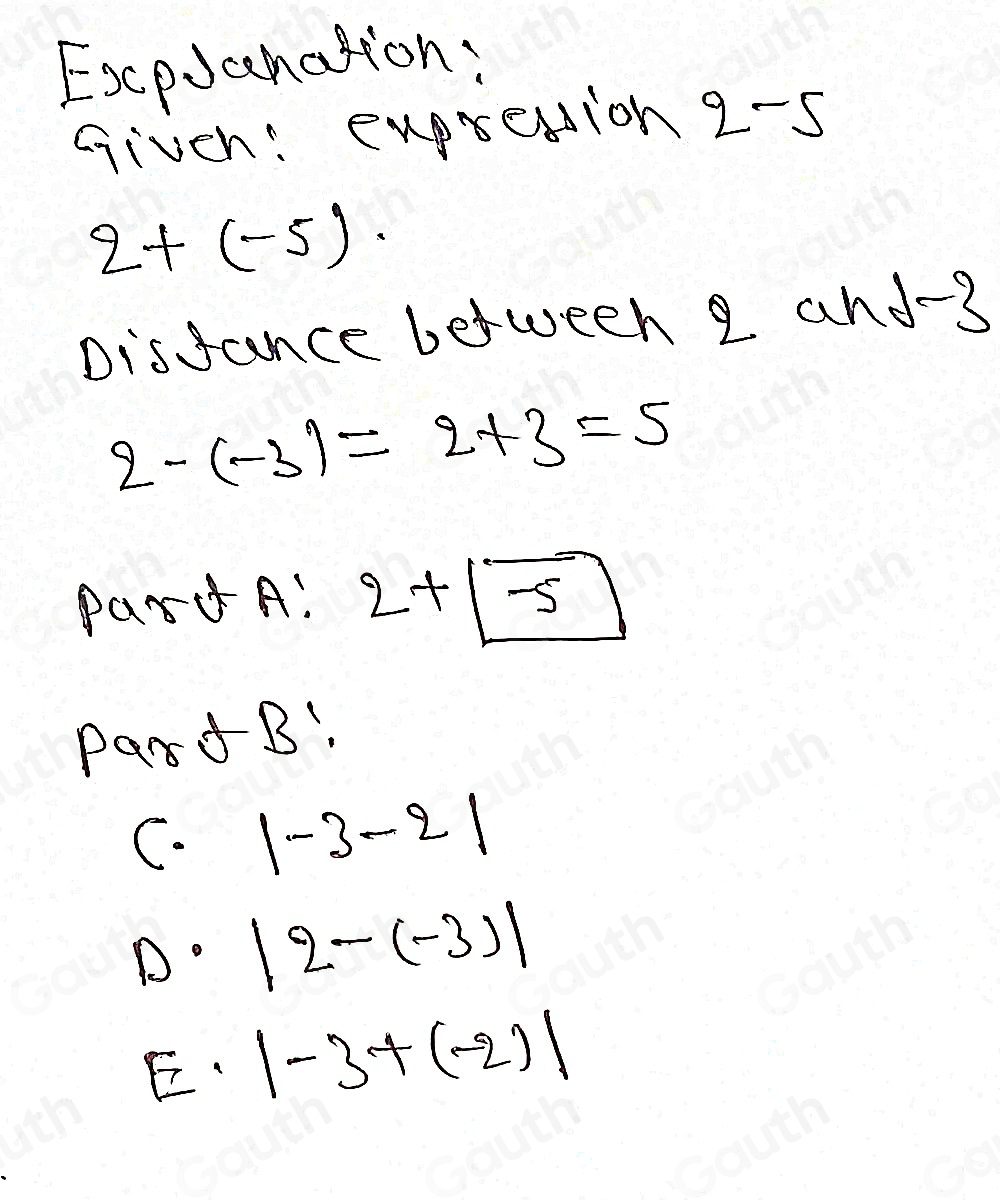 Explanation:
Given: expression 2-5
2+ (-5).
Distance between 2 and -3
2-(-3) = 2+3 = 5
part A: 2+ -5
part B:
C. |-3-2|
D. |2-(-3)|
E. |-3+(-2)|